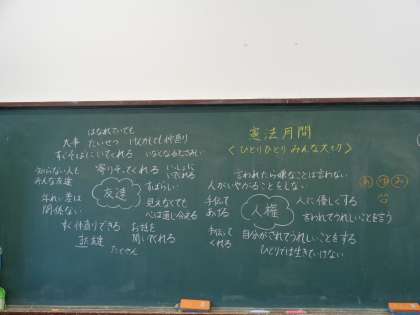 はなれていても
大事 たいせつ けんかしても仲直り
すぐそばにいてくれる いなくなるとさみしい
知らない人も
みんな友達
寄りそってくれる
いっしょに
いてくれる
友達
すばらしい
年れい差は
関係ない
見えなくても
心は通じ合える
すぐ仲直りできる
お話を
聞いてくれる
たくさん
憲法月間
<ひとりひとり みんな大切>
言われたら嫌なことは言わない
人がいやがることをしない
手伝って
あげる
人権
人に優しくする
言われてうれしいことを言う
手伝って
くれる
自分がされてうれしいことをする
ひとりでは生きていけない